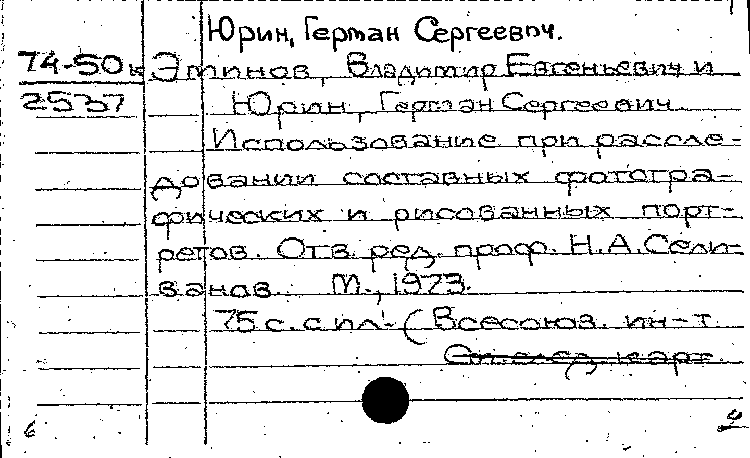 Юрин, Герман Сергеевич.
74-50к Этинов, Владимир Евгеньевич и
2537 Юрин, Герман Сергеевич.
Использование при рассле-
довании составных фотогра-
фических и рисованных порт-
ретов. Отв. ред. проф. Н.А. Сели-
ванов. М., 1973.
75 с. с ил. (Всесоюз. ин-т
См. след. карт.
6 4